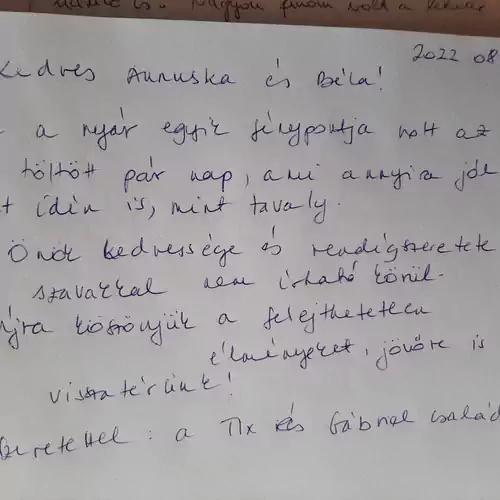 is. Nagyon finom volt a
2022 08
Kedves Annuska és Béla!
a nyár egyik fénypontja volt az
töltött pár nap, ami annyira jól
t idén is, mint tavaly.
Önök kedvessége és vendégszeretete
szavakkal nem írható körül.
Újra köszönjük a felejthetetlen
élményeket, jövőre is
visszatérünk!
Szeretettel: a és Gábriel család